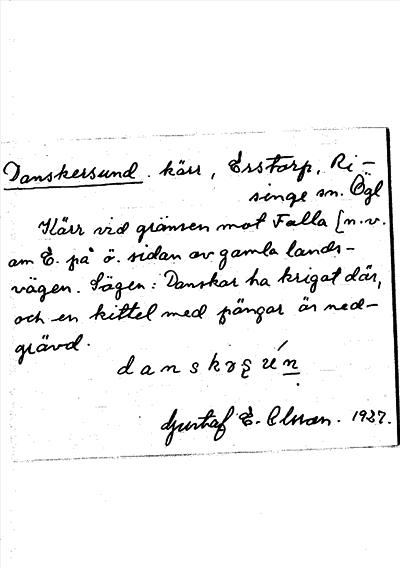 Danskersund. kärr, Ersstorp, Ri-
singe sn. Ögl
Kärr vid gränsen mot Falla [n.v.
om E. på ö. sidan av gamla lands-
vägen. Sägen: Danskar ha krigat där,
och en kittel med pängar är ned-
grävd.
Gustaf E. Olsson. 1937.